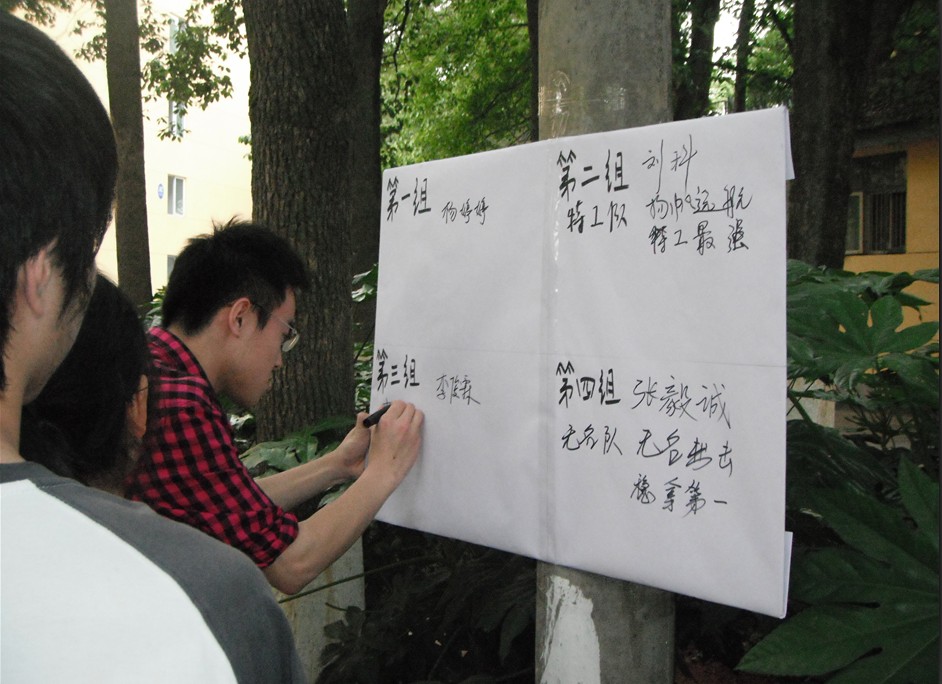 第一组 杨婷婷
第二组 刘科
特工队 扬帆远航
特工最强
第三组 李俊霖
第四组 张毅诚
无名队 无名出击
稳拿第一